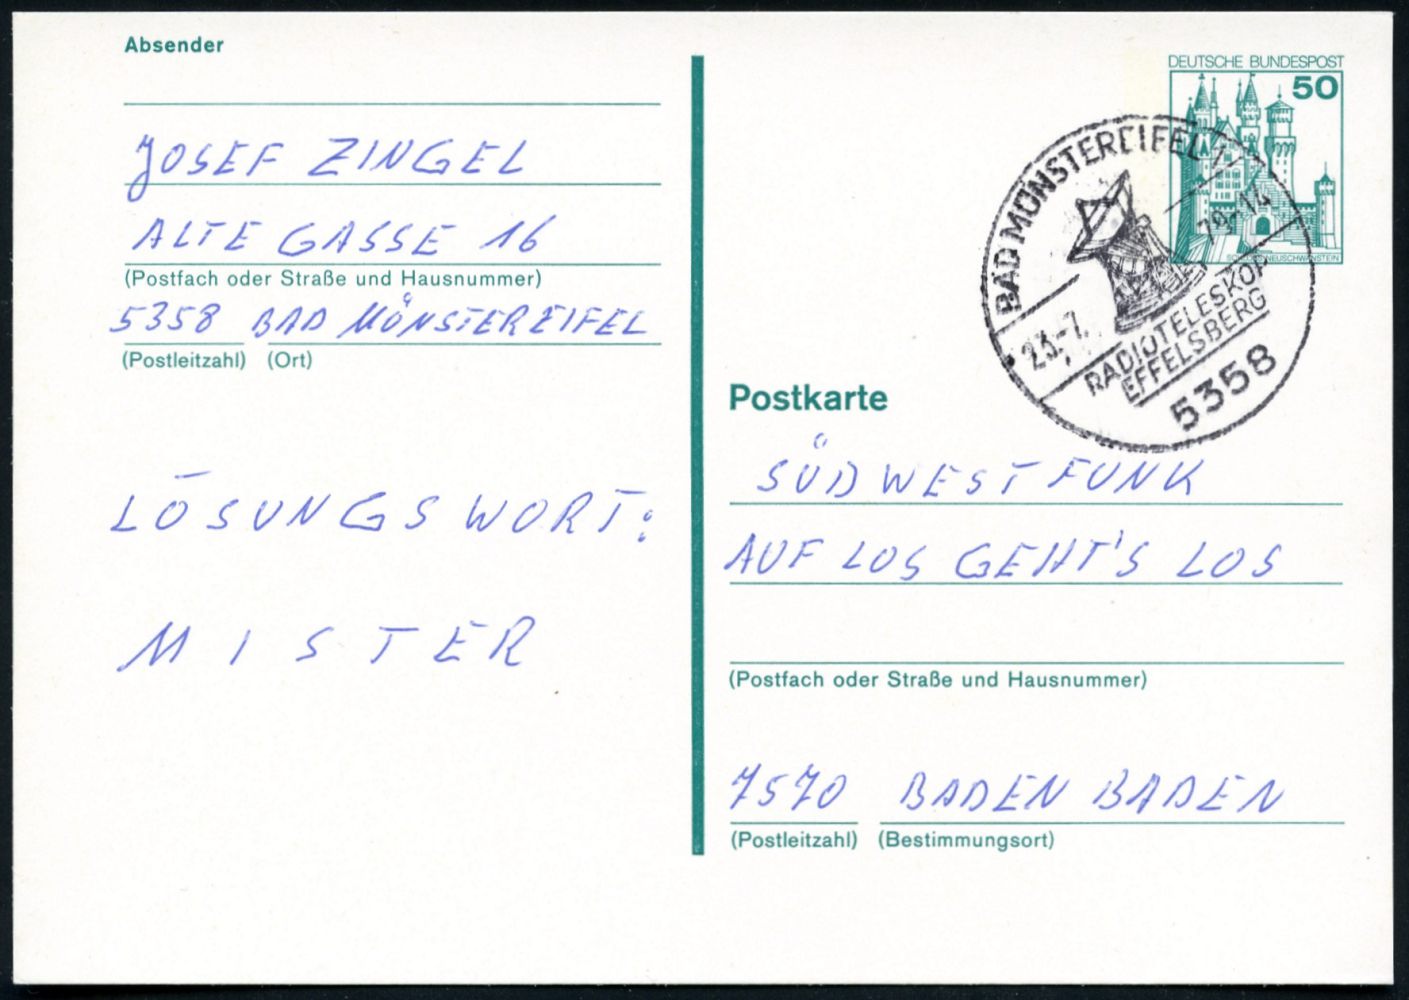 Absender
JOSEF ZINGEL
ALTE GASSE 16
(Postfach oder Straße und Hausnummer)
5358 BAD MÜNSTEREIFEL
(Postleitzahl) (Ort)
LÖSUNGSWORT:
MISTER
DEUTSCHE BUNDESPOST
50
SCHLOSS NEUSCHWANSTEIN
BAD MÜNSTEREIFEL 1
23.-7. 79-14
RADIOTELESKOP
EFFELSBERG
5358
Postkarte
SÜDWESTFUNK
AUF LOS GEHT'S LOS
(Postfach oder Straße und Hausnummer)
7570 BADEN BADEN
(Postleitzahl) (Bestimmungsort)